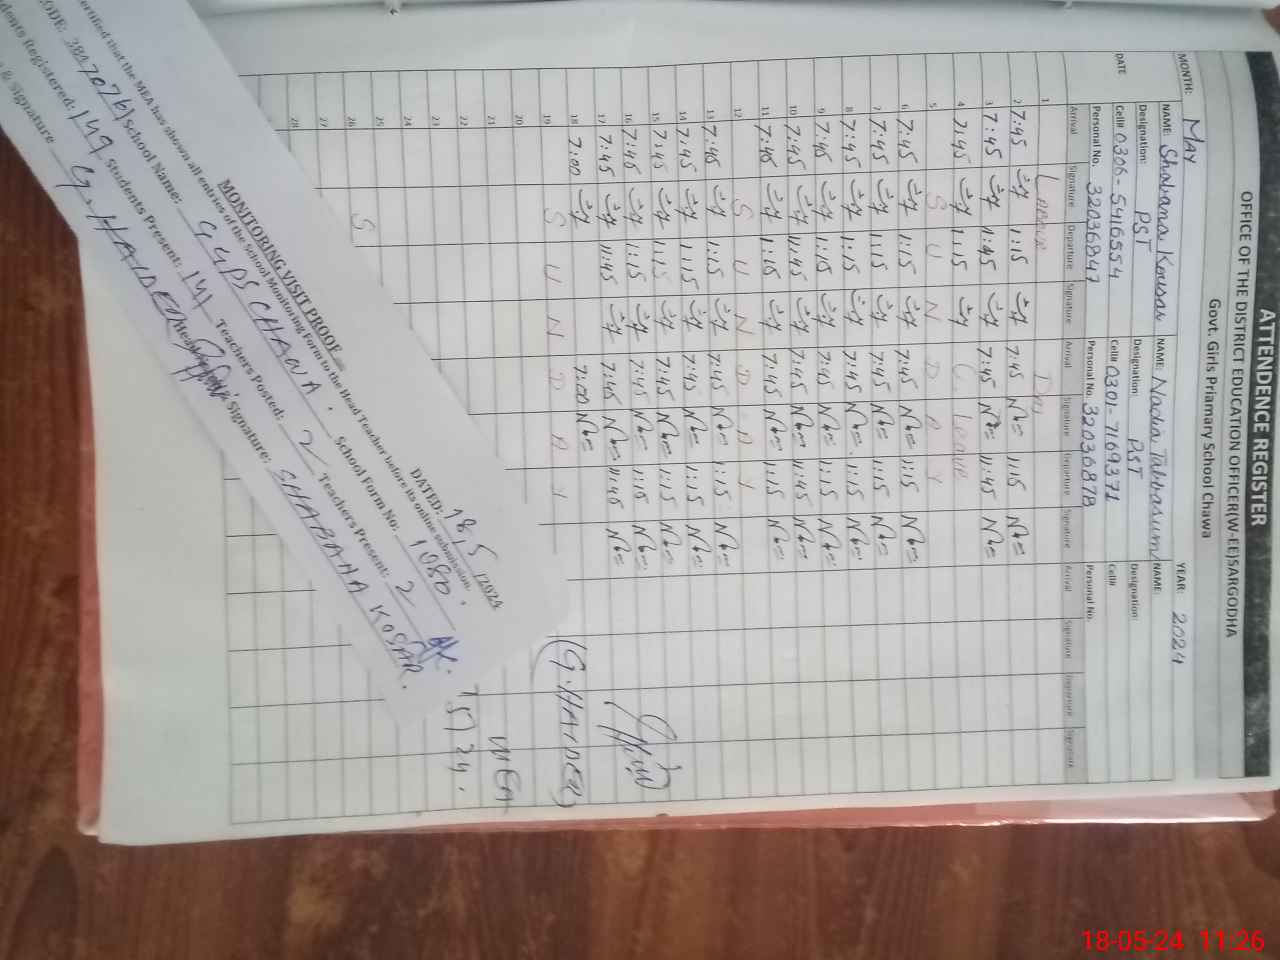 ATTENDENCE REGISTER
OFFICE OF THE DISTRICT EDUCATION OFFICER(W-EE)SARGODHA
Govt. Girls Priamary School Chawa
MONTH: MAY YEAR: 2024
NAME: Shabana Kousar NAME: Nadia Tabbasum NAME:
Designation: PST Designation: PST Designation:
DATE Cell# 0306-5416554 Cell# 0301-7169371 Cell#
Personal No. 32036847 Personal No. 32036878 Personal No.
Arrival Signature Departure Signature Arrival Signature Departure Signature Arrival Signature Departure Signature
1 Labour Day
2 7:45 1:15 7:45 1:15
3 7:45 11:45 7:45 11:45
4 7:45 1:15 C. Leave
5 S U N D A Y
6 7:45 1:15 7:45 1:15
7 7:45 1:15 7:45 1:15
8 7:45 1:15 7:45 1:15
9 7:45 1:15 7:45 1:15
10 7:45 11:45 7:45 11:45
11 7:45 1:15 7:45 1:15
12 S U N D A Y
13 7:45 1:15 7:45 1:15
14 7:45 1:15 7:45 1:15
15 7:45 1:15 7:45 1:15
16 7:45 1:15 7:45 1:15
17 7:45 11:45 7:45 11:45
18 7:00 7:00
19 S U N D A Y
20
21
22
23
24
25
26 S
27
28
(G.HAIDER)
MEA
MONITORING VISIT PROOF
DATED: 18/5/2024
ertified that the MEA has shown all entries of the School Monitoring Form to the Head Teacher before its online submission.
CODE: 38470761 School Name: GGPS CHAWA. School Form No: 1080
dents Registered: 149 Students Present: 141 Teachers Posted: 2 Teachers Present: 2
& Signature G.HAIDER Signature: SHABANA KOSAR.
18-05-24 11:26